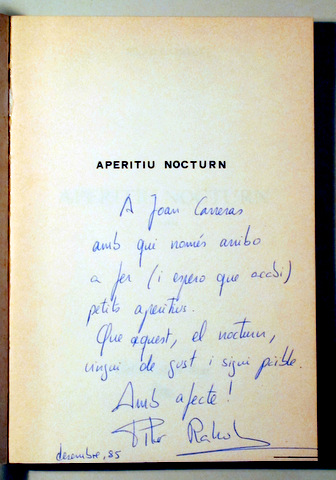 APERITIU NOCTURN
A Joan Carreras
amb qui només arribo
a fer (i espero que acabi)
petits aperitius.
Que aquest, el nocturn,
vingui de gust i sigui païble.
Amb afecte!
Pilar Rahola
desembre, 85